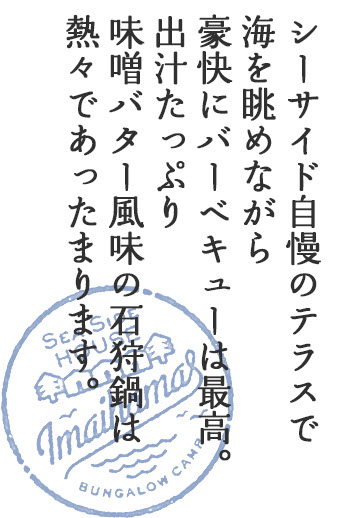 シーサイド自慢のテラスで
海を眺めながら
豪快にバーベキューは最高。
出汁たっぷり
味噌バター風味の石狩鍋は
熱々であったまります。
SEA SIDE
HOUSE
Imaihamas
BUNGALOW CAMP